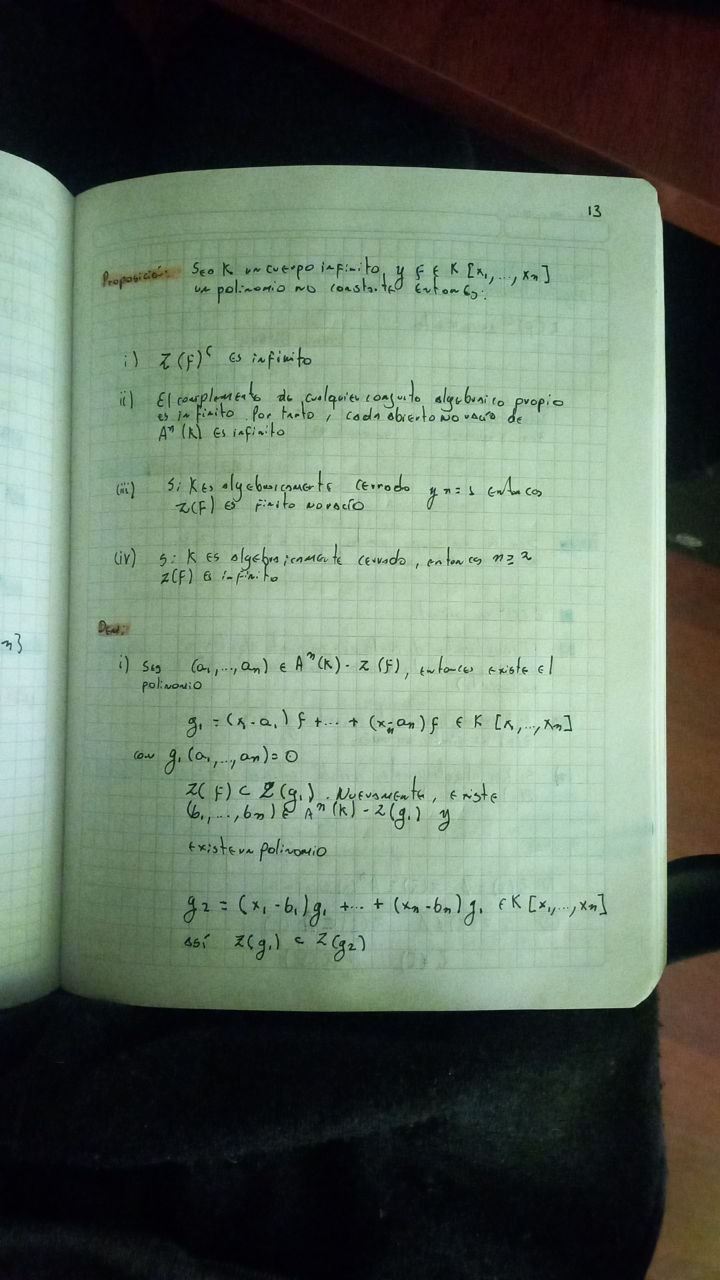 13
Proposición: Sea K un cuerpo infinito, y f ∈ K [x₁,...,xₙ]
un polinomio no constante entonces:
i) Z(F)ᶜ es infinito
ii) El complemento de cualquier conjunto algebraico propio
es infinito. Por tanto, cada abierto no vacío de
Aⁿ(K) es infinito
(iii) Si K es algebraicamente cerrado y n = 1 entonces
Z(F) es finito no vacío
(iv) Si K es algebraicamente cerrado, entonces n ≥ 2
Z(F) es infinito
Dem:
i) Sea (a₁,...,aₙ) ∈ Aⁿ(K) - Z(F), entonces existe el
polinomio
g₁ = (x₁-a₁)f + ... + (xₙ-aₙ)f ∈ K [x₁,...,xₙ]
con g₁(a₁,...,aₙ) = 0
Z(F) ⊂ Z(g₁). Nuevamente, existe
(b₁,...,bₙ) ∈ Aⁿ(K) - Z(g₁) y
existe un polinomio
g₂ = (x₁-b₁)g₁ + ... + (xₙ-bₙ)g₁ ∈ K [x₁,...,xₙ]
así Z(g₁) ⊂ Z(g₂)
n}